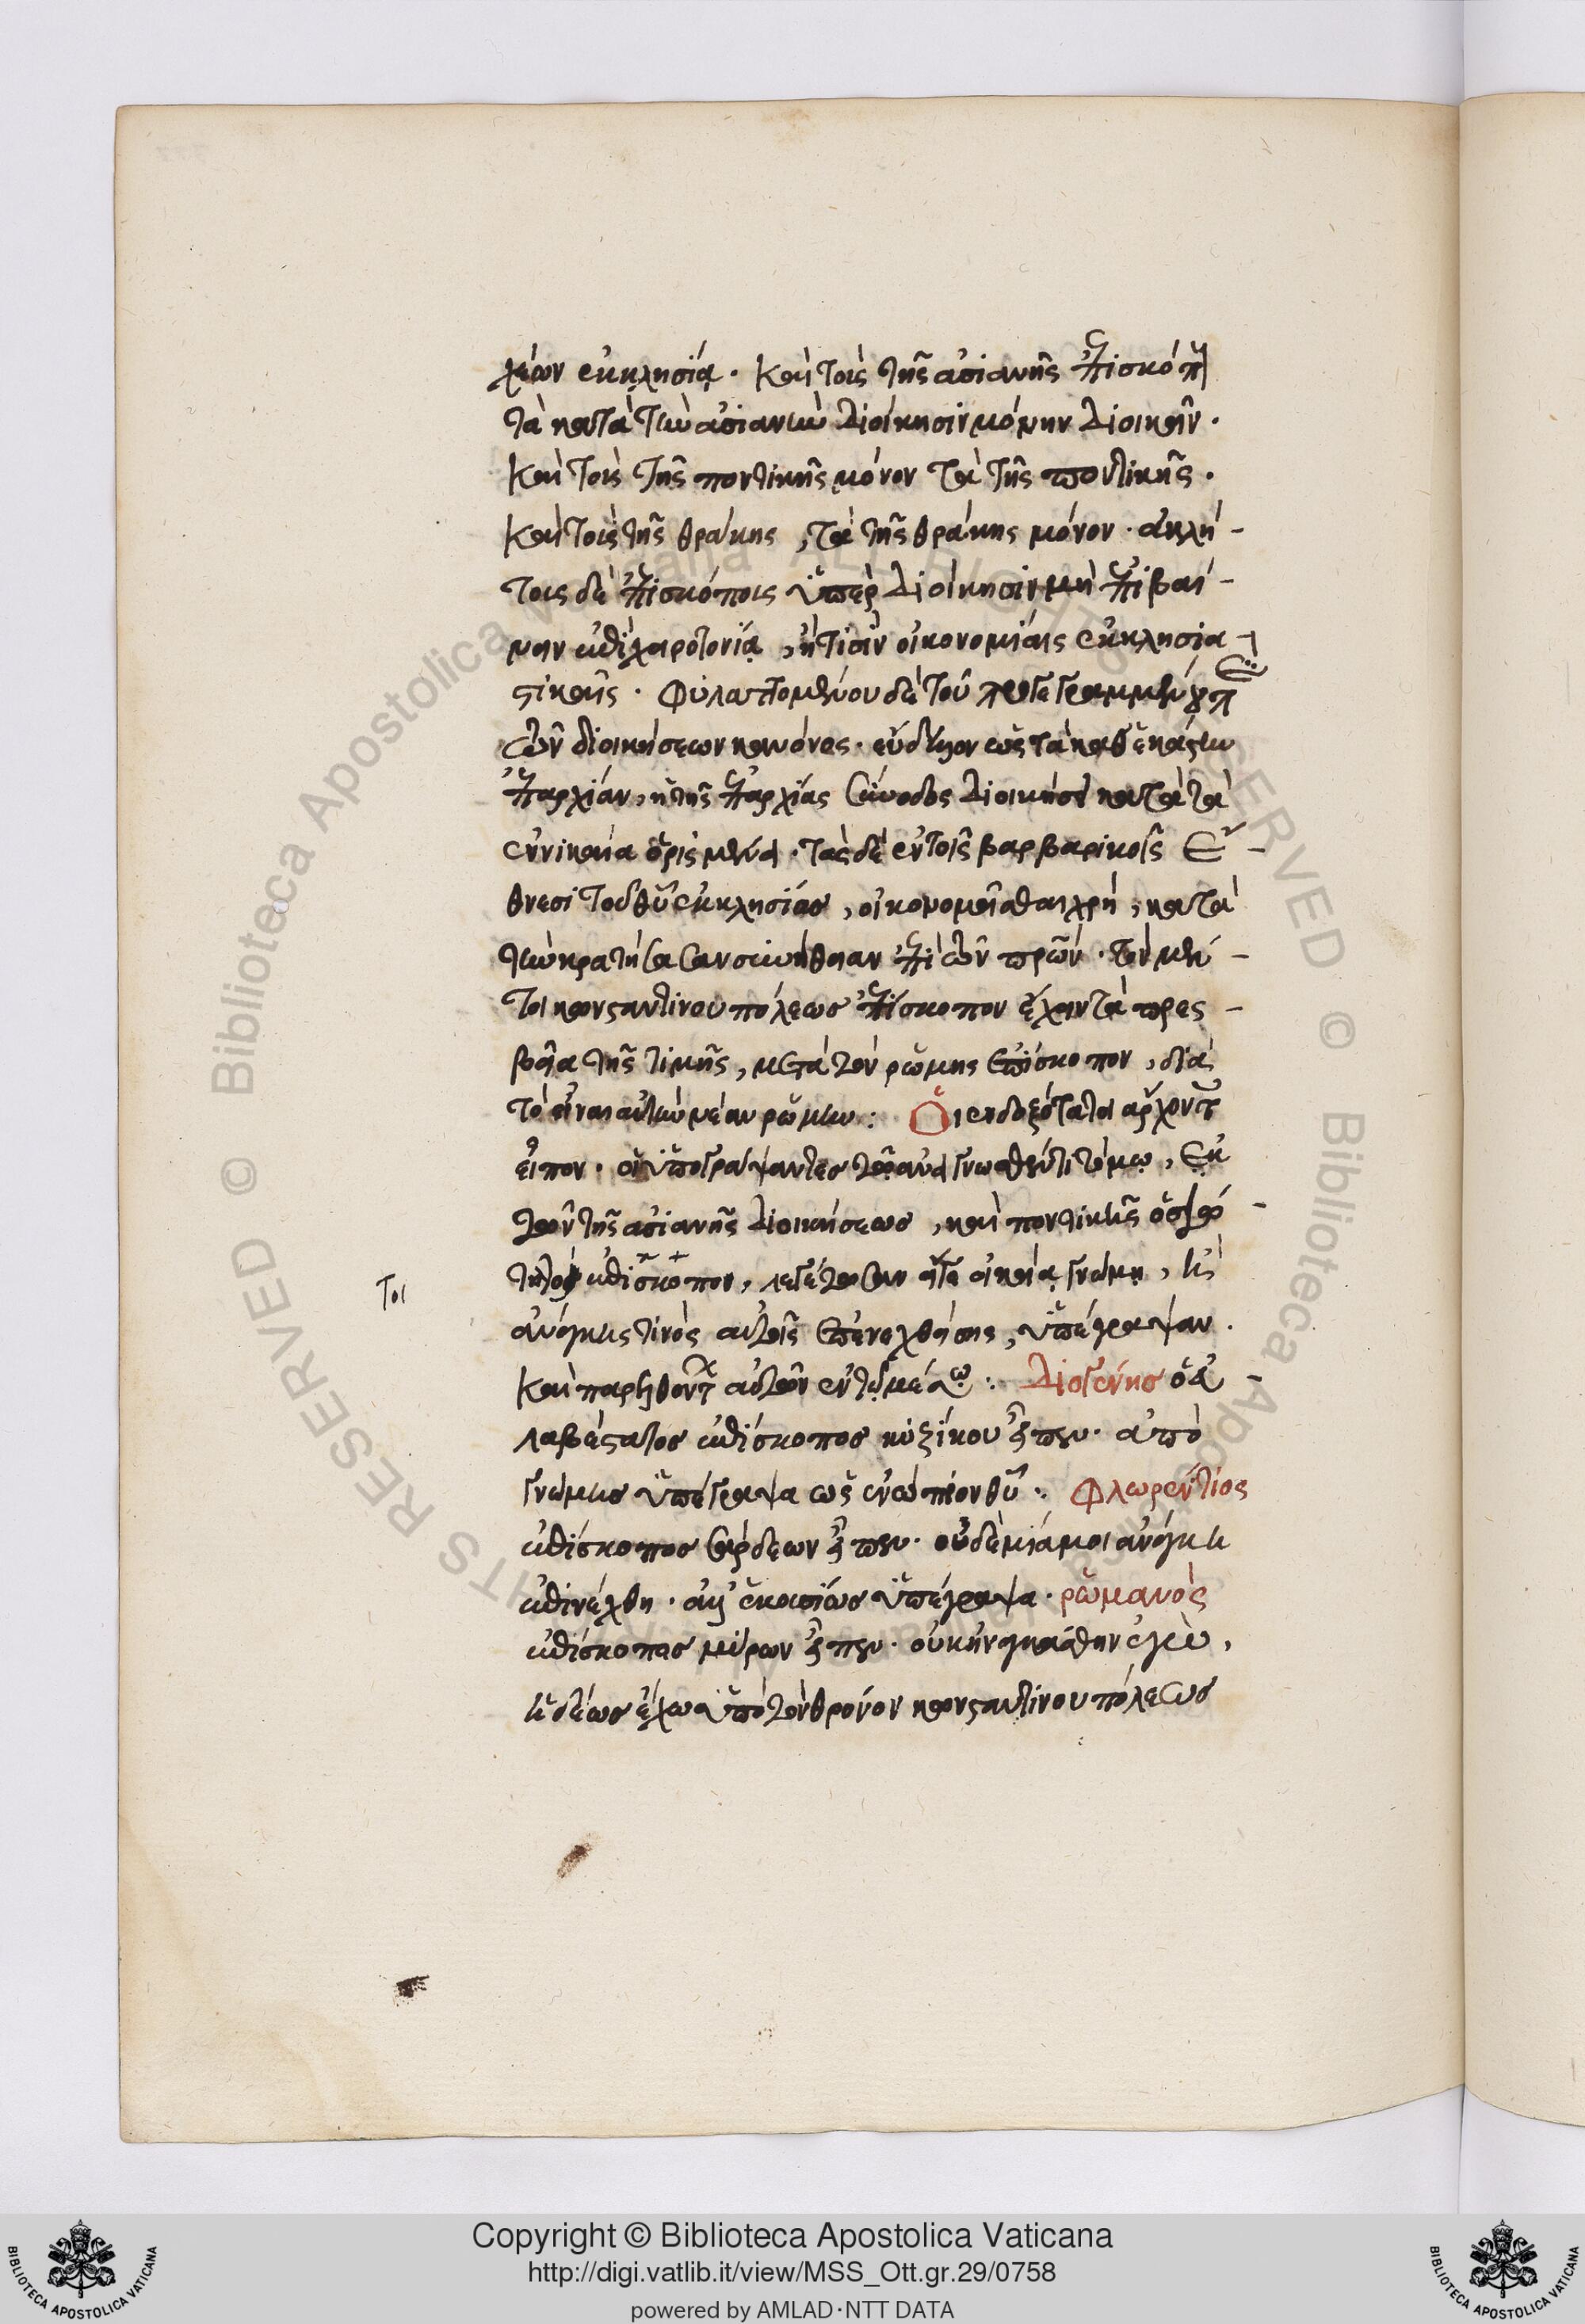 χέων ἐκκλησίᾳ. καὶ τοὺς τῆς ἀσιανῆς ἐπισκόπους
τὰ κατὰ τὴν ἀσιανὴν διοίκησιν μόνην διοικεῖν.
καὶ τοὺς τῆς ποντικῆς μόνον τὰ τῆς ποντικῆς.
καὶ τοὺς τῆς θράκης, τὰ τῆς θράκης μόνον. ἀκλή-
τους δὲ ἐπισκόπους ὑπὲρ διοίκησιν μὴ ἐπιβαί-
νειν ἐπὶ χειροτονίᾳ, ἤ τισιν οἰκονομίαις ἐκκλησια-
στικαῖς. φυλαττομένου δὲ τοῦ προγεγραμμένου περὶ
τῶν διοικήσεων κανόνος. εὔδηλον ὡς τὰ καθ' ἑκάστην
ἐπαρχίαν, ἡ τῆς ἐπαρχίας σύνοδος διοικήσει κατὰ τὰ
ἐν νικαίᾳ ὡρισμένα. τὰς δὲ ἐν τοῖς βαρβαρικοῖς ἔ-
θνεσι τοῦ θῦ ἐκκλησίας, οἰκονομεῖσθαι χρὴ, κατὰ
τὴν κρατήσασαν συνήθειαν ἐπὶ τῶν πρῶν. τὸν μέν-
τοι κωνσταντίνου πόλεως ἐπίσκοπον ἔχειν τὰ πρεσ-
βεῖα τῆς τιμῆς, μετὰ τὸν ῥώμης ἐπίσκοπον, διὰ
τὸ εἶναι αὐτὴν νέαν ῥώμην: Οἱ ἐνδοξότατοι ἄρχοντες
εἶπον. οἱ ὑπογράψαντες τῷ ἀναγνωσθέντι τόμῳ, ἐκ
τῶν τῆς ἀσιανῆς διοικήσεως, καὶ ποντικῆς ὁσιώ-
τατοι ἐπίσκοποι, λεγέτωσαν εἴτε οἰκείᾳ γνώμῃ, ἢ
ἀνάγκης τινὸς αὐτοῖς ἐπενεχθείσης, ὑπέγραψαν.
Τοι
καὶ παρελθόντων αὐτῶν ἐν τῷ μέσῳ: Διογένης ὁ εὐ-
λαβέστατος ἐπίσκοπος κυζίκου εἶπεν. ἀπὸ
γνώμης ὑπέγραψα ὡς ἐνώπιον θῦ: Φλωρέντιος
ἐπίσκοπος σάρδεων εἶπεν. οὐδὲ μιά μοι ἀνάγκη
ἐπινέχθη. ἀλλ' ἑκουσίως ὑπέγραψα. ῥωμανὸς
ἐπίσκοπος μύρων εἶπεν. οὐκ ἠναγκάσθην ἐγὼ,
ἡδέως ἔχω ὑπὸ τὸν θρόνον κωνσταντίνου πόλεως
Copyright © Biblioteca Apostolica Vaticana
http://digi.vatlib.it/view/MSS_Ott.gr.29/0758
powered by AMLAD·NTT DATA